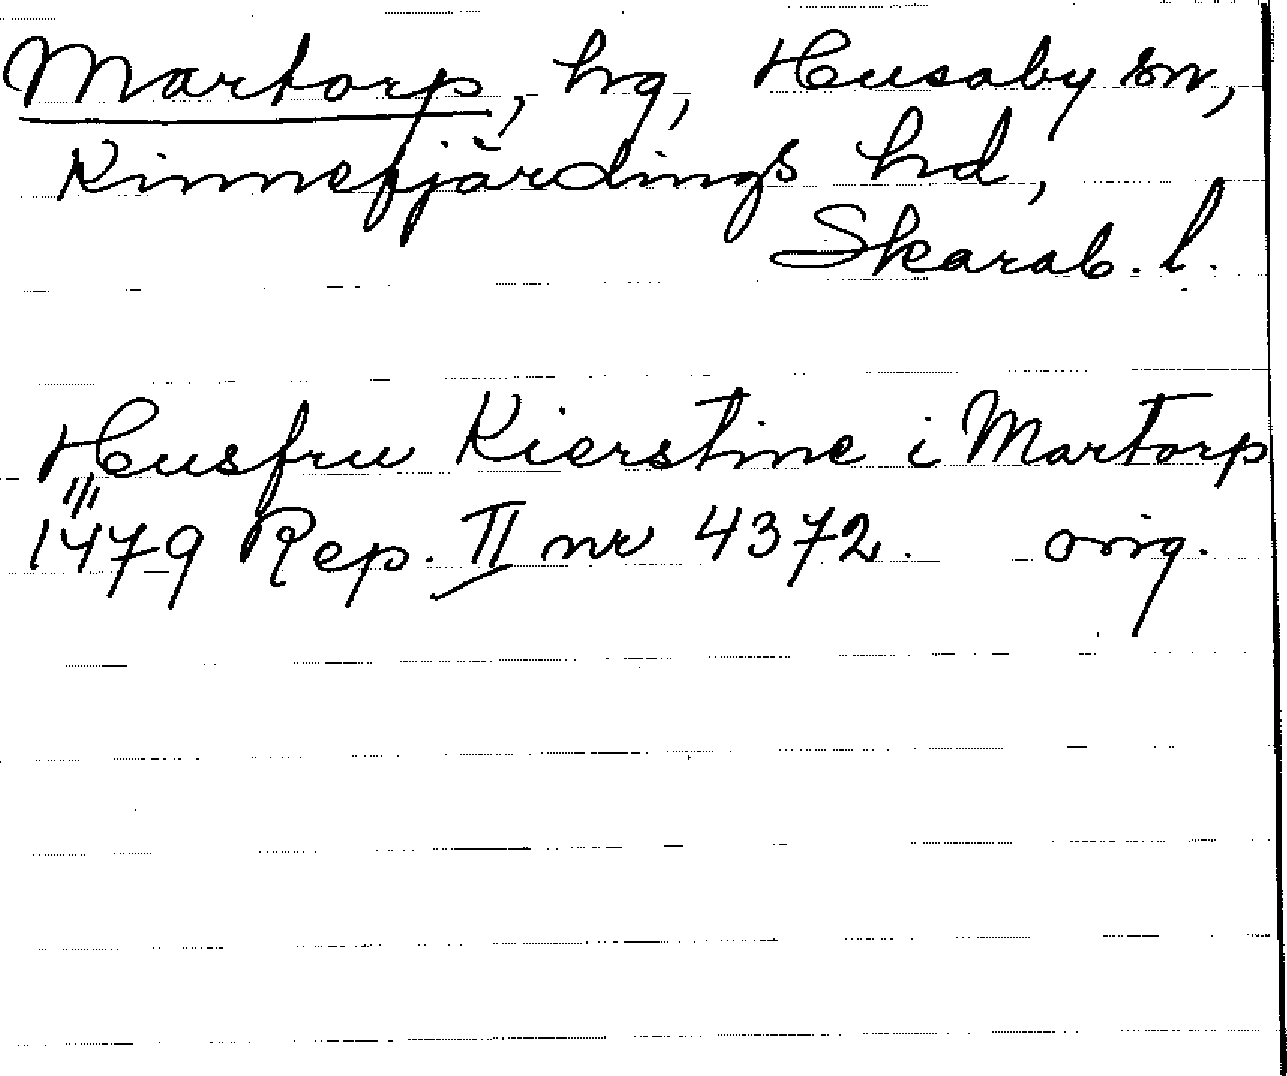 Martorp, hg, Husaby sn,
Kinnefjärdings hd,
Skarab. l.
Husfru Kierstine i Martorp
1479 Rep. II nr 4372. orig.